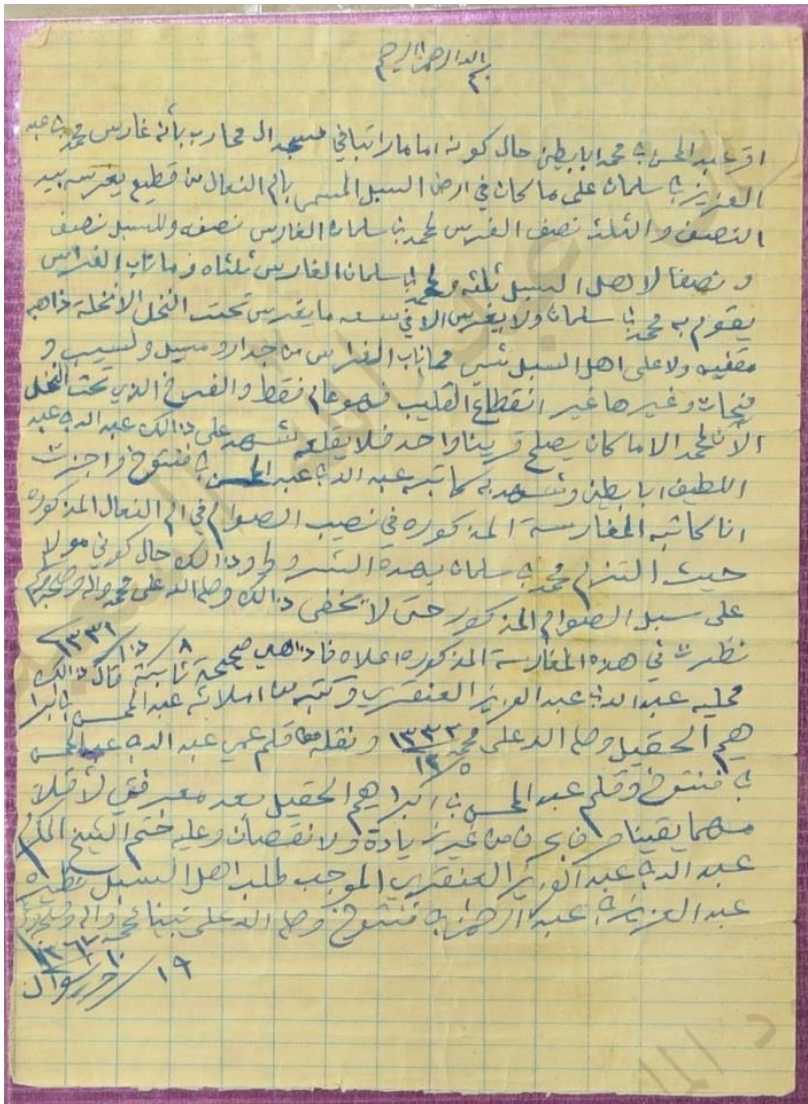 بسم الله الرحمن الرحيم
اقر عبد المحسن بن محمد ابابطين حال كونه اماما راتبا في مسجد ال محارب بأنه غارس محمد بن عبد
العزيز بن سلمان على ما كان في ارض السبل المسمى بام النعال من قطيع يغرسه بيد
النصف والثلث نصف الغرس لمحمد بن سلمان الغارس نصفه وللسبل نصف
ونصفا لاهل السبل ثلثه ولمحمد بن سلمان الغارس ثلثاه وما ناب الغراس
يقوم به محمد بن سلمان ولا يغرس الا في سعه ما يغرس تحت النخل الا نخلة ذاهبه
مقفيه ولا على اهل السبل شيء مما ناب الغراس من جدار ومسيل ولسيب و
وغيرها غير انقطاع القليب فهو عام فقط والفرخ الذي تحت النخل
الآن لمحمد الا ما كان يصلح واحد فلا يقلعه شهد على ذالك عبد الله بن عبد
اللطيف ابابطين وشهد به كاتبه عبد الله بن عبد المحسن بن فنتوخ واجزت
انا كاتبه المغارسة المذكوره في نصيب الصوام في ام النعال المذكوره
حيث التزم محمد بن سلمان بهذه الشروط وذالك حال كوني مولا
على سبل الصوام المذكور حتى لا يخفى ذالك وصلى الله على محمد واله وصحبه وسلم
٨ / ذا / ١٣٣١
نظرت في هذه المغارسة المذكوره اعلاه فاذا هي صحيحة ثابتة قال ذالك
ممليه عبد الله بن عبد العزيز العنقري وكتبه من املائه عبد المحسن بن ابرا
هيم الحقيل وصلى الله على محمد ١٣٣٢ / ٥ / ١٢ ونقله من قلم عمي عبد الله بن عبد المحسن
بن فنتوخ وقلم عبد المحسن بن ابراهيم الحقيل بعد معرفتي لأقلا
مهما يقينا حرف بحرف من غير زيادة ولا نقصان وعليه ختم الشيخ المكرم
عبد الله بن عبد العزيز العنقري الموجب طلب اهل السبل
عبد العزيز بن عبد الرحمن بن فنتوخ وصلى الله على نبينا محمد واله وصحبه وسلم
١٩ / حرر شوال / ١٣٦٢